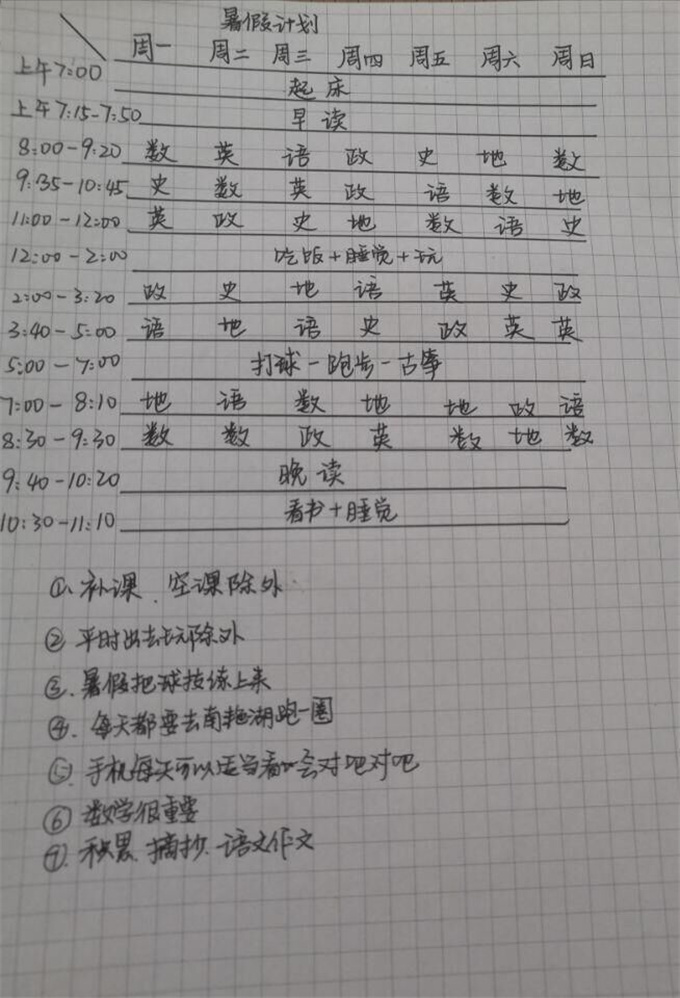 暑假计划
周一 周二 周三 周四 周五 周六 周日
上午7:00 起床
上午7:15-7:50 早读
8:00-9:20 数 英 语 政 史 地 数
9:35-10:45 史 数 英 政 语 数 地
11:00-12:00 英 政 史 地 数 语 史
12:00-2:00 吃饭+睡觉+玩
2:00-3:20 政 史 地 语 英 史 政
3:40-5:00 语 地 语 史 政 英 英
5:00-7:00 打球-跑步-古事
7:00-8:10 地 语 数 地 地 政 语
8:30-9:30 数 数 政 英 数 地 数
9:40-10:20 晚读
10:30-11:10 看书+睡觉
①、补课、空课除外
② 平时出去玩除外
③、暑假把球技练上来
④、每天都要去南艳湖跑一圈
⑤、手机每天可以适当看一会对吧对吧
⑥ 数学很重要
⑦、积累、摘抄、语文作文